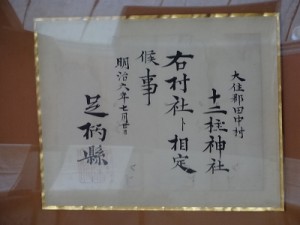 大住郡田中村
十二柱神社
右村社ト相定
候事
明治六年七月廿日
足柄縣